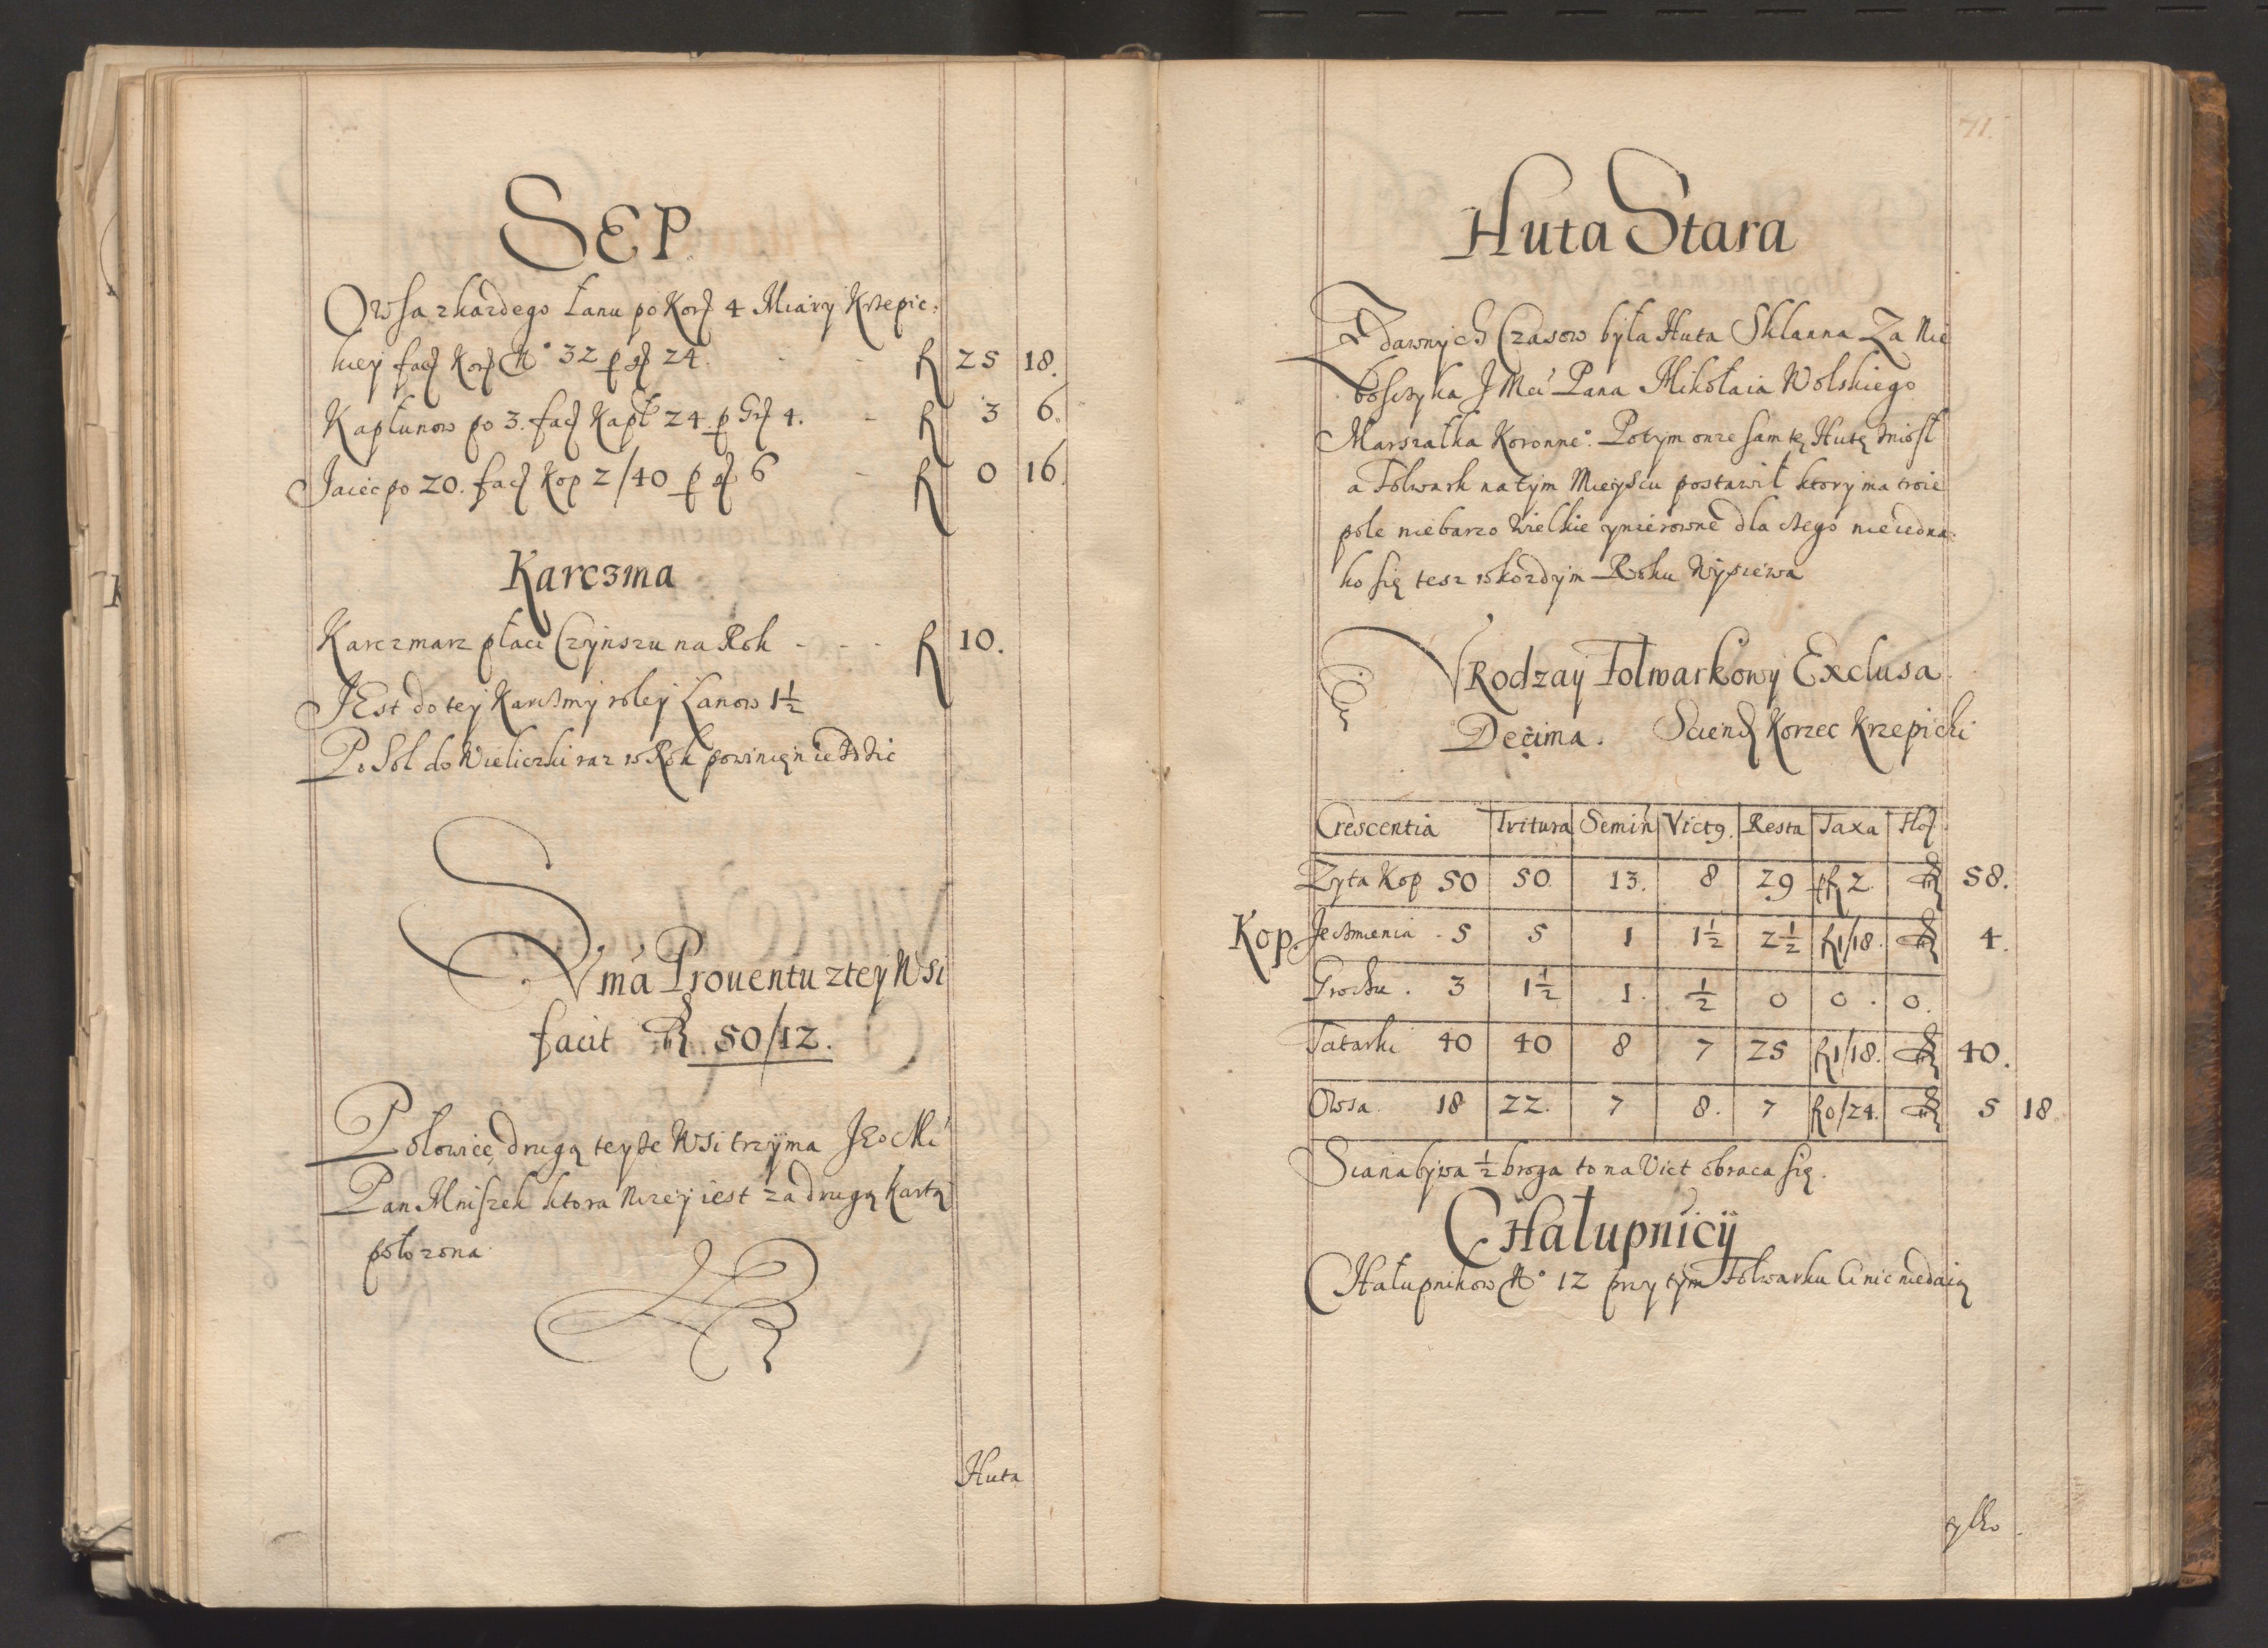 SEP
Owsa z kazdego Łanu po Korz 4 Miary Krzepic:
kiey facz Korz No 32 p gr 24. - - fl 25 18.
Kapłunow po 3. facz Kapł 24 p Grz 4. - fl 3 6.
Jaiec po 20. facz Kop 2/40 p gr 6 - fl 0 16.
Karczma
Karczmarz płaci Czynszu na Rok - - - fl 10.
JEst do tey Karczmy roley Łanow 1½
Po Sol do Wieliczki raz w Rok powinięn iezdzic
Sumá Prouentu z tey Wsi
facit fl. 50/12.
Połowicę drugą teyze Wsi trzyma JEo Mć
Pan Mniszek ktora nizey iest za drugą kartą
połozona
Huta
71.
Huta Stara
Z dawnych Czasow była Huta Sklanna Za Nie
bosczyka J Mći Pana Mikołaia Wolskiego
Marszałka Koronneo. Potym onze sam tę Hutę zniosł
a Folwark na tym Mieyscu postawił ktory ma troie
pole nie barzo Wielkie y nierowne dla czego nie iedna:
ko się tesz w kozdym Roku Wysiewa
VRodzay Folwarkowy Exclusa
Decima. Sciend Korzec Krzepicki
Crescentia Tritura Semin Vict9. Resta Taxa Flo
Zyta Kop 50 50. 13. 8 29 p fl 2. fl 58.
Kop. Jeczmienia . 5 5 1 1½ 2½ fl 1/18. fl 4.
Grochu . 3 1½ 1. ½ 0 0. 0.
Tatarki 40 40 8 7 25 fl 1/18. fl 40.
Owsa 18 22. 7 8. 7 fl 0/24. fl 5 18.
Siana bywa ½ broga to na Vict obraca się.
CHałupnicy
CHałupnikow No 12 przy tym Folwarku Ci nic niedaią
tylko